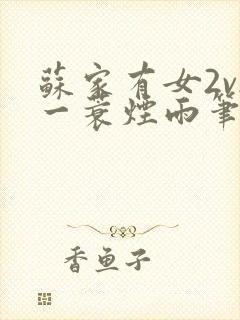 蘇家有女2v
一蓑煙雨筆
香魚子